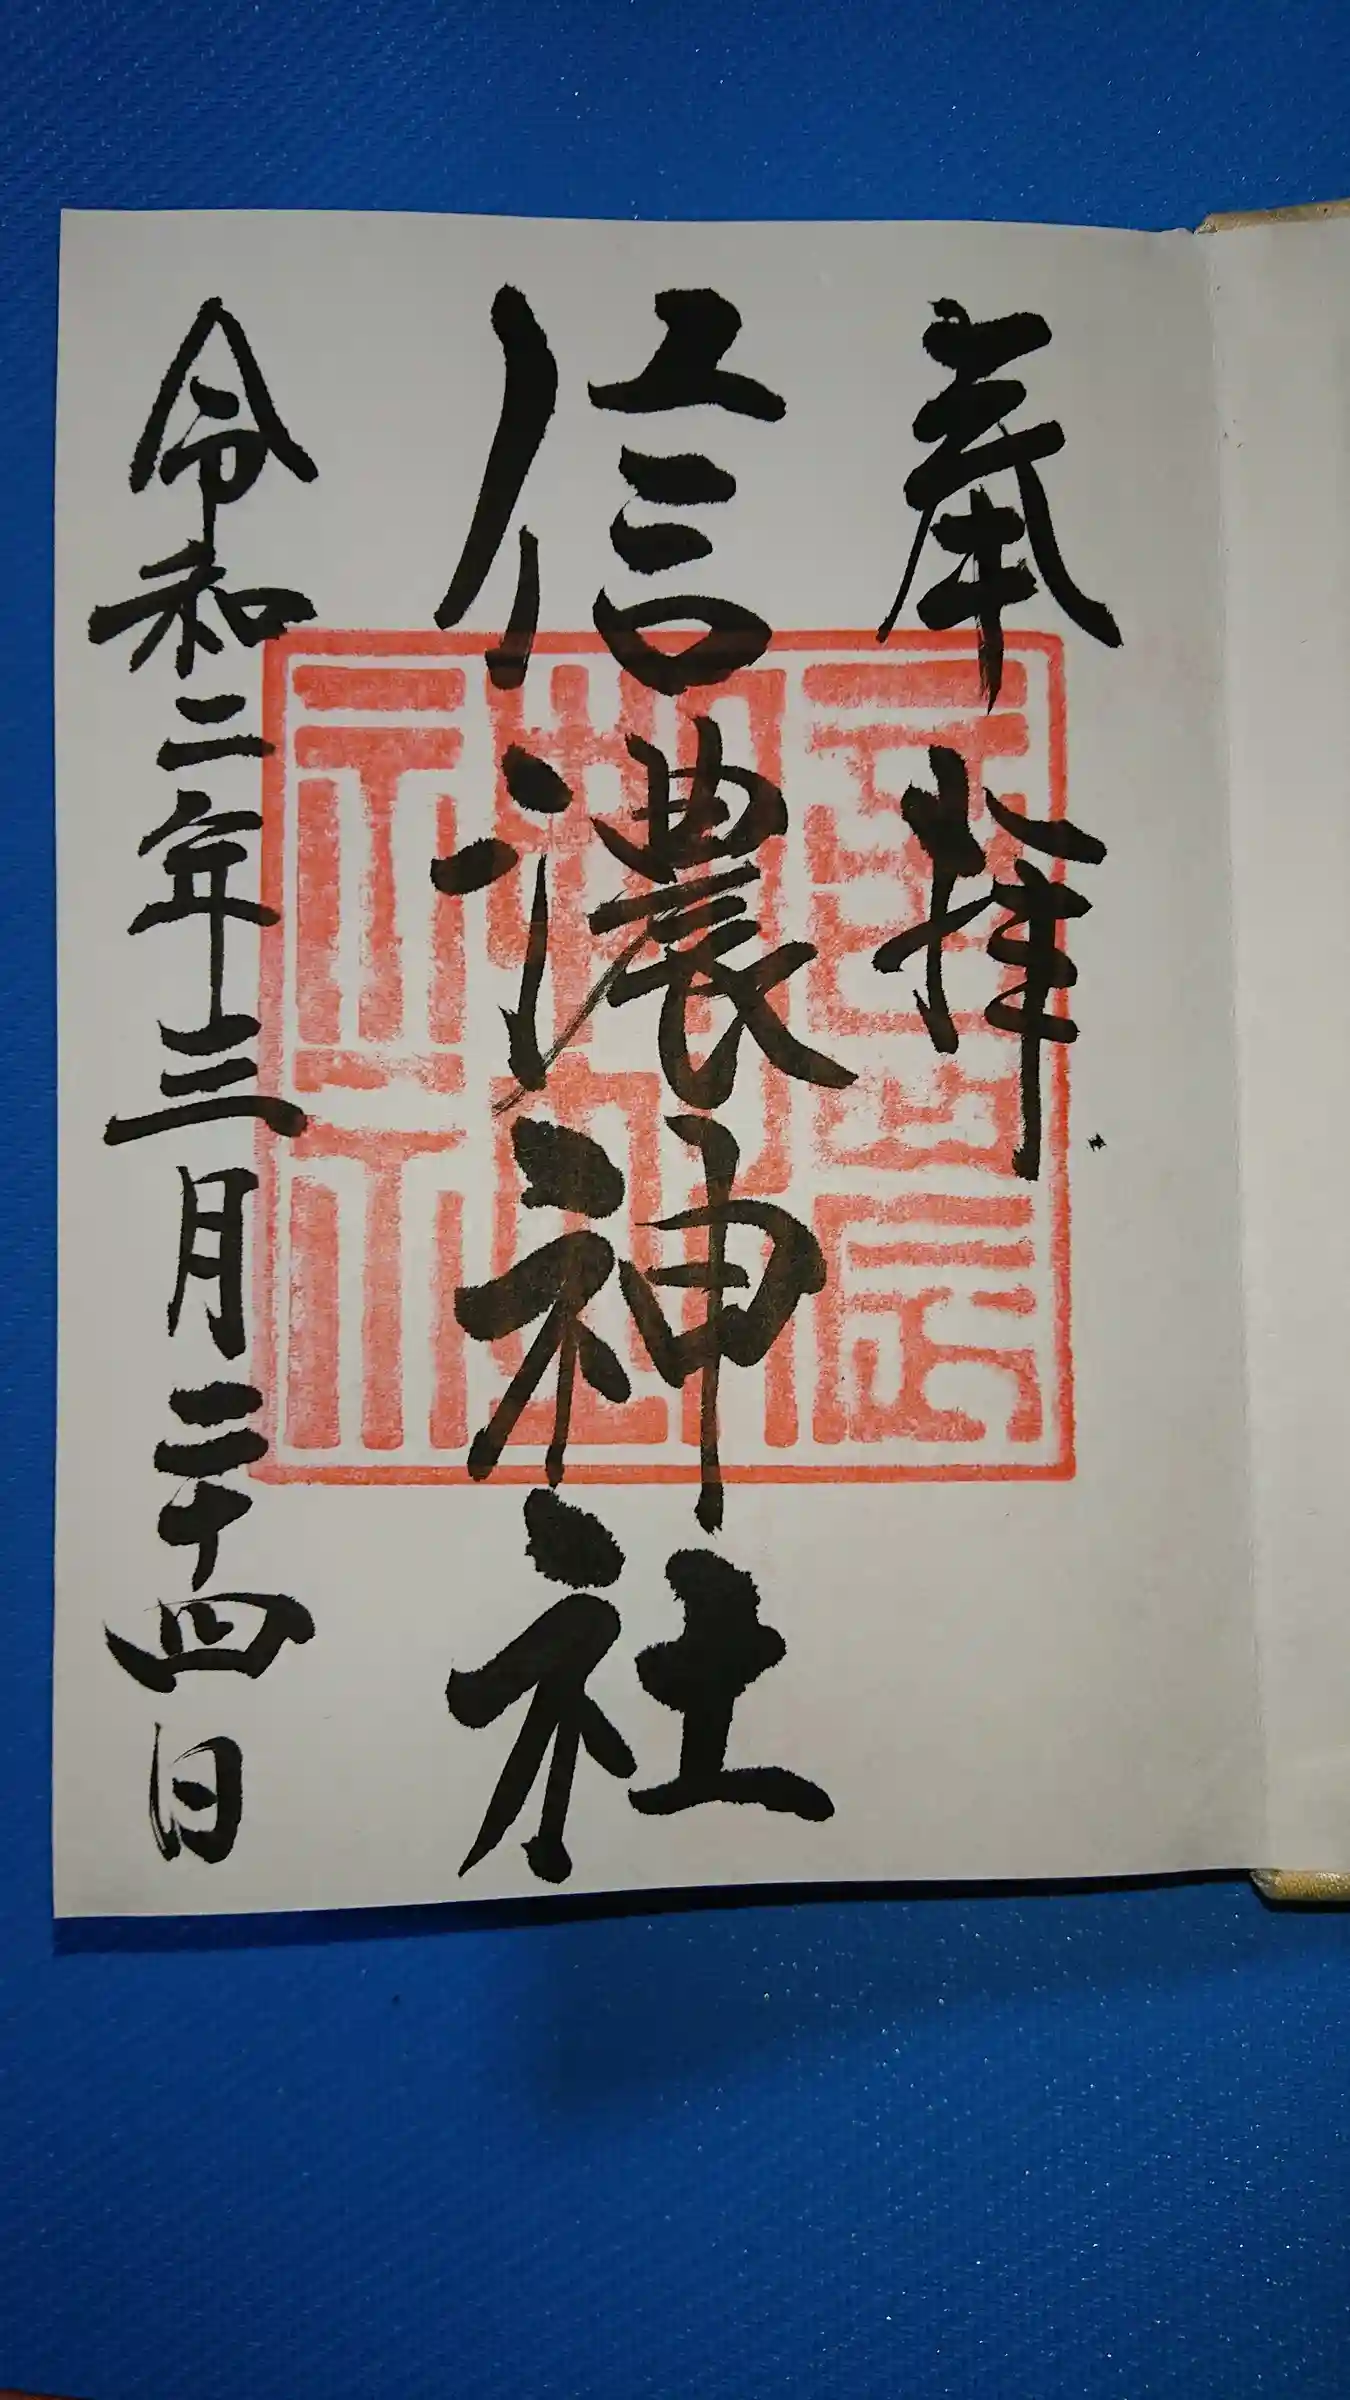 奉拝
信濃神社
令和二年三月二十四日